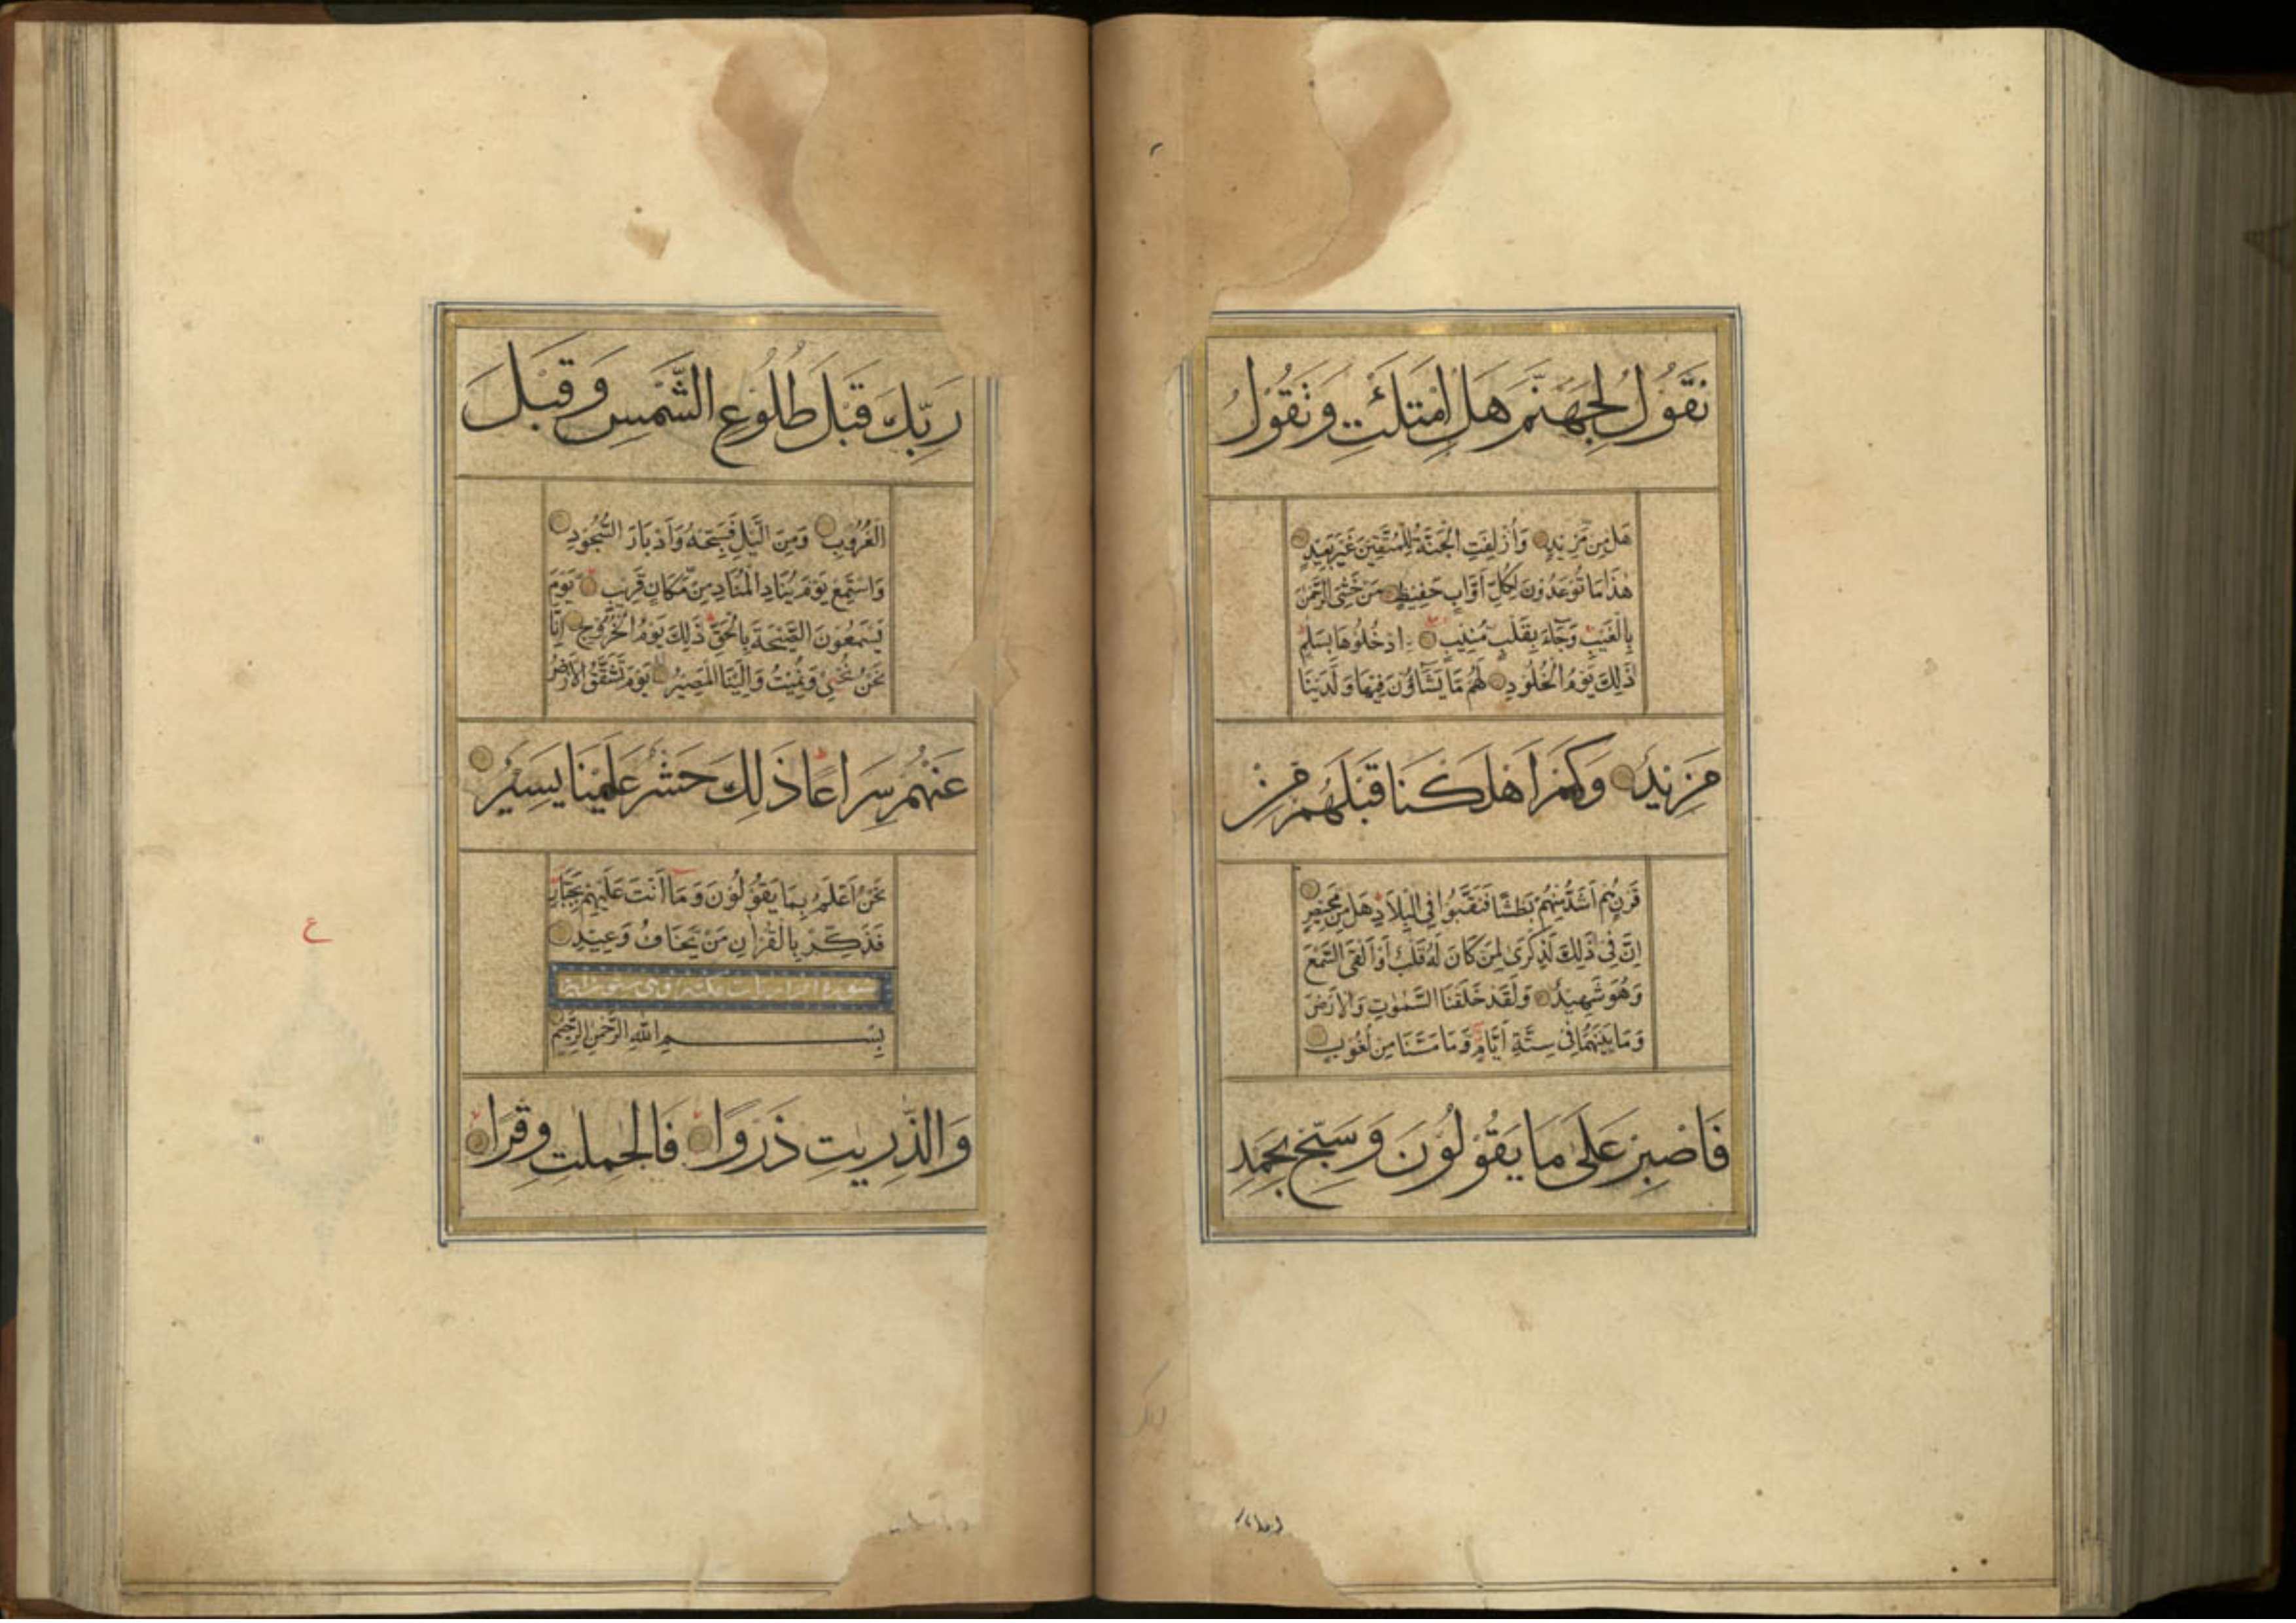 نَقُوْلُ لِجَهَنَّمَ هَلِ امْتَلَئْتِ وَتَقُوْلُ
هَلْ مِنْ مَّزِيْدٍ وَاُزْلِفَتِ الْجَنَّةُ لِلْمُتَّقِيْنَ غَيْرَ بَعِيْدٍ
هٰذَا مَا تُوْعَدُوْنَ لِكُلِّ اَوَّابٍ حَفِيْظٍ مَنْ خَشِىَ الرَّحْمٰنَ
بِالْغَيْبِ وَجَآءَ بِقَلْبٍ مُنِيْبٍ ادْخُلُوْهَا بِسَلٰمٍ
ذٰلِكَ يَوْمُ الْخُلُوْدِ لَهُمْ مَا يَشَآؤُنَ فِيْهَا وَلَدَيْنَا
مَزِيْدٌ وَكَمْ اَهْلَكْنَا قَبْلَهُمْ مِنْ
قَرْنٍ هُمْ اَشَدُّ مِنْهُمْ بَطْشًا فَنَقَّبُوْا فِى الْبِلَادِ هَلْ مِنْ مَحِيْصٍ
اِنَّ فِىْ ذٰلِكَ لَذِكْرٰى لِمَنْ كَانَ لَهٗ قَلْبٌ اَوْ اَلْقَى السَّمْعَ
وَهُوَ شَهِيْدٌ وَلَقَدْ خَلَقْنَا السَّمٰوٰتِ وَالْاَرْضَ
وَمَا بَيْنَهُمَا فِىْ سِتَّةِ اَيَّامٍ وَمَا مَسَّنَا مِنْ لُغُوْبٍ
فَاصْبِرْ عَلٰى مَا يَقُوْلُوْنَ وَسَبِّحْ بِحَمْدِ
رَبِّكَ قَبْلَ طُلُوْعِ الشَّمْسِ وَقَبْلَ
الْغُرُوْبِ وَمِنَ الَّيْلِ فَسَبِّحْهُ وَاَدْبَارَ السُّجُوْدِ
وَاسْتَمِعْ يَوْمَ يُنَادِ الْمُنَادِ مِنْ مَّكَانٍ قَرِيْبٍ يَوْمَ
يَسْمَعُوْنَ الصَّيْحَةَ بِالْحَقِّ ذٰلِكَ يَوْمُ الْخُرُوْجِ اِنَّا
نَحْنُ نُحْيِىْ وَنُمِيْتُ وَاِلَيْنَا الْمَصِيْرُ يَوْمَ تَشَقَّقُ الْاَرْضُ
عَنْهُمْ سِرَاعًا ذٰلِكَ حَشْرٌ عَلَيْنَا يَسِيْرٌ
نَحْنُ اَعْلَمُ بِمَا يَقُوْلُوْنَ وَمَا اَنْتَ عَلَيْهِمْ بِجَبَّارٍ
فَذَكِّرْ بِالْقُرْاٰنِ مَنْ يَخَافُ وَعِيْدِ
سورة الذاريات مكية وهى ستون اية
بِسْمِ اللّٰهِ الرَّحْمٰنِ الرَّحِيْمِ
وَالذّٰرِيٰتِ ذَرْوًا فَالْحٰمِلٰتِ وِقْرًا
ع